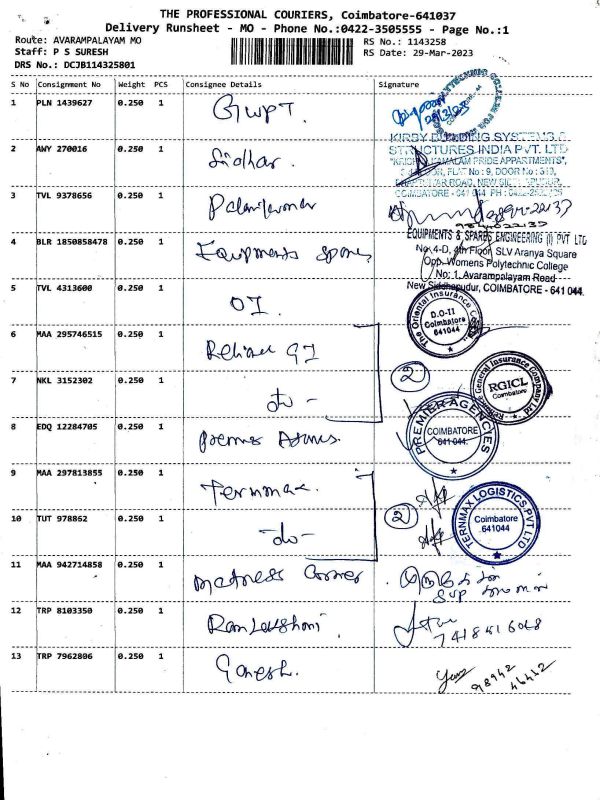 THE PROFESSIONAL COURIERS, Coimbatore-641037
Delivery Runsheet - MO - Phone No.:0422-3505555 - Page No.:1
Route: AVARAMPALAYAM MO
Staff: P S SURESH
DRS No.: DCJB114325801
RS No.: 1143258
RS Date: 29-Mar-2023
S No Consignment No Weight PCS Consignee Details Signature
1 PLN 1439627 0.250 1 GWPT.
KIRBY BUILDING SYSTEMS &
STRUCTURES INDIA PVT. LTD
2 AWY 270016 0.250 1 Sridhar.
3 TVL 9378656 0.250 1
4 BLR 1850858478 0.250 1 Equipments spares
EQUIPMENTS & SPARES ENGINEERING (I) PVT LTD
No.4-D, 4th Floor, SLV Aranya Square
Opp. Womens Polytechnic College
No: 1, Avarampalayam Road
New Siddhapudur, COIMBATORE - 641 044.
5 TVL 4313600 0.250 1 OI.
The Oriental Insurance Co
D.O-II
Coimbatore
641044
6 MAA 295746515 0.250 1 Reliance GI
7 NKL 3152302 0.250 1 -do-
2
Reliance General Insurance Company Ltd
RGICL
Coimbatore
8 EDQ 12284705 0.250 1 Premier
PREMIER AGENCIES
COIMBATORE
641 044.
9 MAA 297813855 0.250 1 Ternmax.
10 TUT 978862 0.250 1 -do-
2
TERNMAX LOGISTICS PVT LTD
Coimbatore
641044
11 MAA 942714858 0.250 1 Mattress Corner
12 TRP 8103350 0.250 1 Ramlakshmi.
13 TRP 7962806 0.250 1 Ganesh.
98942
46412